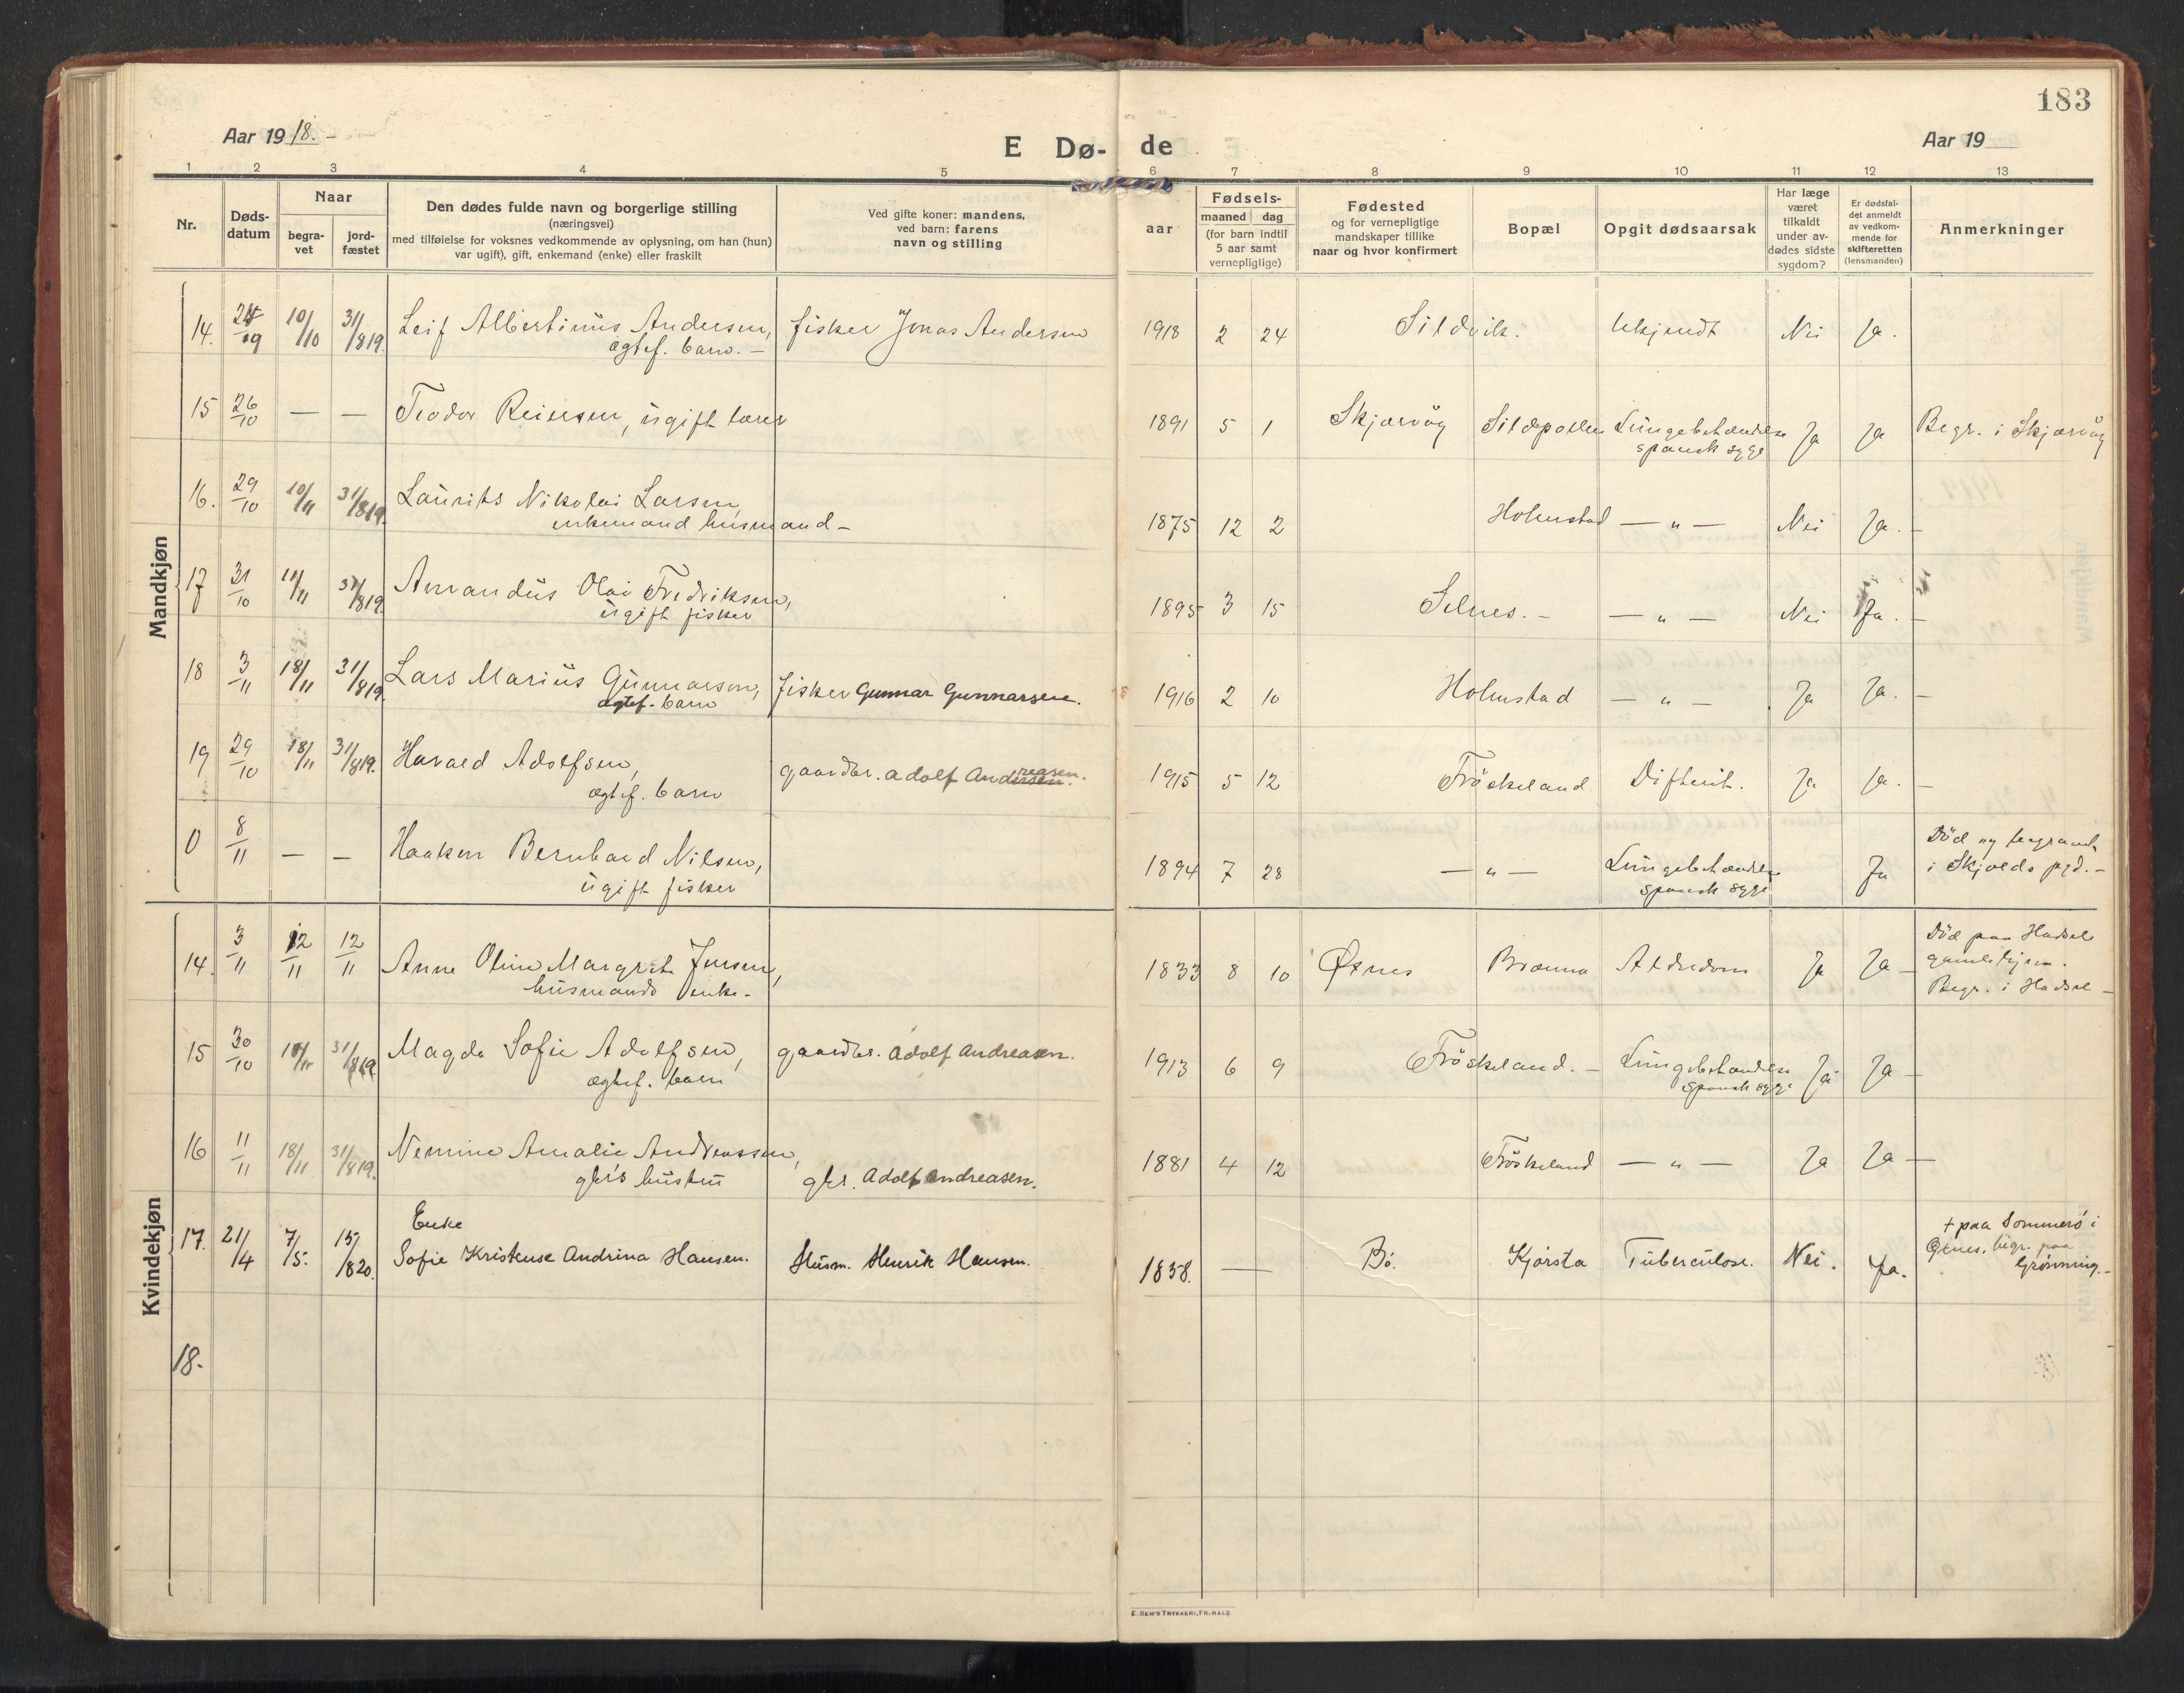 183
Aar 1918.-
E Dø- de
Aar 19
1 2 3 4 5 6 7 8 9 10 11 12 13
Nr.
Døds-
datum
Naar
begra-
vet
jord-
fæstet
Den dødes fulde navn og borgerlige stilling
(næringsvei)
med tilføielse for voksnes vedkommende av oplysning, om han (hun)
var ugift), gift, enkemand (enke) eller fraskilt
Ved gifte koner: mandens,
ved barn: farens
navn og stilling
aar
Fødsels-
maaned dag
(for barn indtil
5 aar samt
vernepligtige)
Fødested
og for vernepligtige
mandskaper tillike
naar og hvor konfirmert
Bopæl
Opgit dødsaarsak
Har læge
været
tilkaldt
under av-
dødes sidste
sygdom?
Er dødsfal-
det anmeldt
av vedkom-
mende for
skifteretten
(lensmanden)
Anmerkninger
Mandkjøn
14. 10/10 31/819. Leif Albertinus Andersen, fisker Jonas Andersen 1918 2 24 Sildvik. Ukjendt Nei Ja.
ægtef. barn. -
15 26/10 — — Teodor Reiersen, ugift lærer 1891 5 1 Skjærvøy Sildpollen Lungebetændelse Ja Ja Begr. i Skjærvøy
spansk syge
16. 29/10 10/11 31/819. Laurits Nikolai Larsen, 1875 12 2 Holmstad — " — Nei Ja. -
enkemand husmand -
17 31/10 11/11 31/819. Amandus Olai Fredriksen, 1895 3 15 Selnes. - — " — Nei Ja. -
ugift fisker
18 3/11 18/11 31/819. Lars Marius Gunnarsen, fisker Gunnar Gunnarsen. 1916 2 10 Holmstad — " — Ja Ja. -
ægtef. barn
19 29/10 18/11 31/819. Harald Adolfsen, gaardbr. Adolf Andreasen. 1915 5 12 Frøskeland Difterit. Ja Ja. -
ægtef. barn
0 8/11 — — Haakon Bernhard Nilsen, 1894 7 28 — " — Lungebetændelse Ja Død og begravet
ugift fisker spansk syge i Skjolds pgd. -
Kvindekjøn
14. 3/11 12/11 12/11 Anne Oline Margrete Jensen, 1833 8 10 Øxnes Alderdom Ja Ja - Død paa Hadsel
husmands enke - gamlehjem.
Begr. i Hadsel -
15 30/10 31/819. Magda Sofie Adolfsen, gaardbr. Adolf Andreasen. 1913 6 9 Frøskeland. - Lungebetændelse Ja Ja -
ægtef. barn spansk syge
16 11/11 18/11 31/819. Nemine Amalie Andreassen, 1881 4 12 Frøskeland — " — Ja Ja -
gbr's hustru gbr. Adolf Andreasen.
Enke
17. 21/4 7/5. 15/820. Sofie Kristense Andrina Hansen. Husm. Henrik Hansen. 1838. — Bø. Kjørsta Tuberculose. Nei. Ja. + paa Sommerø i
Øxnes, begr. paa
Grønning. -
18.
E. SEM'S TRYKKERI, FR.HALD